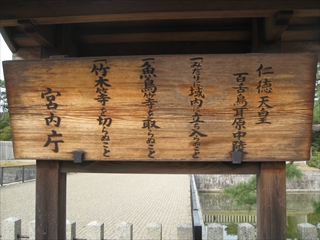 仁徳天皇
百舌鳥耳原中陵
一、みだりに域内に立ち入らぬこと
一、魚鳥等を取らぬこと
一、竹木等を切らぬこと
宮内庁